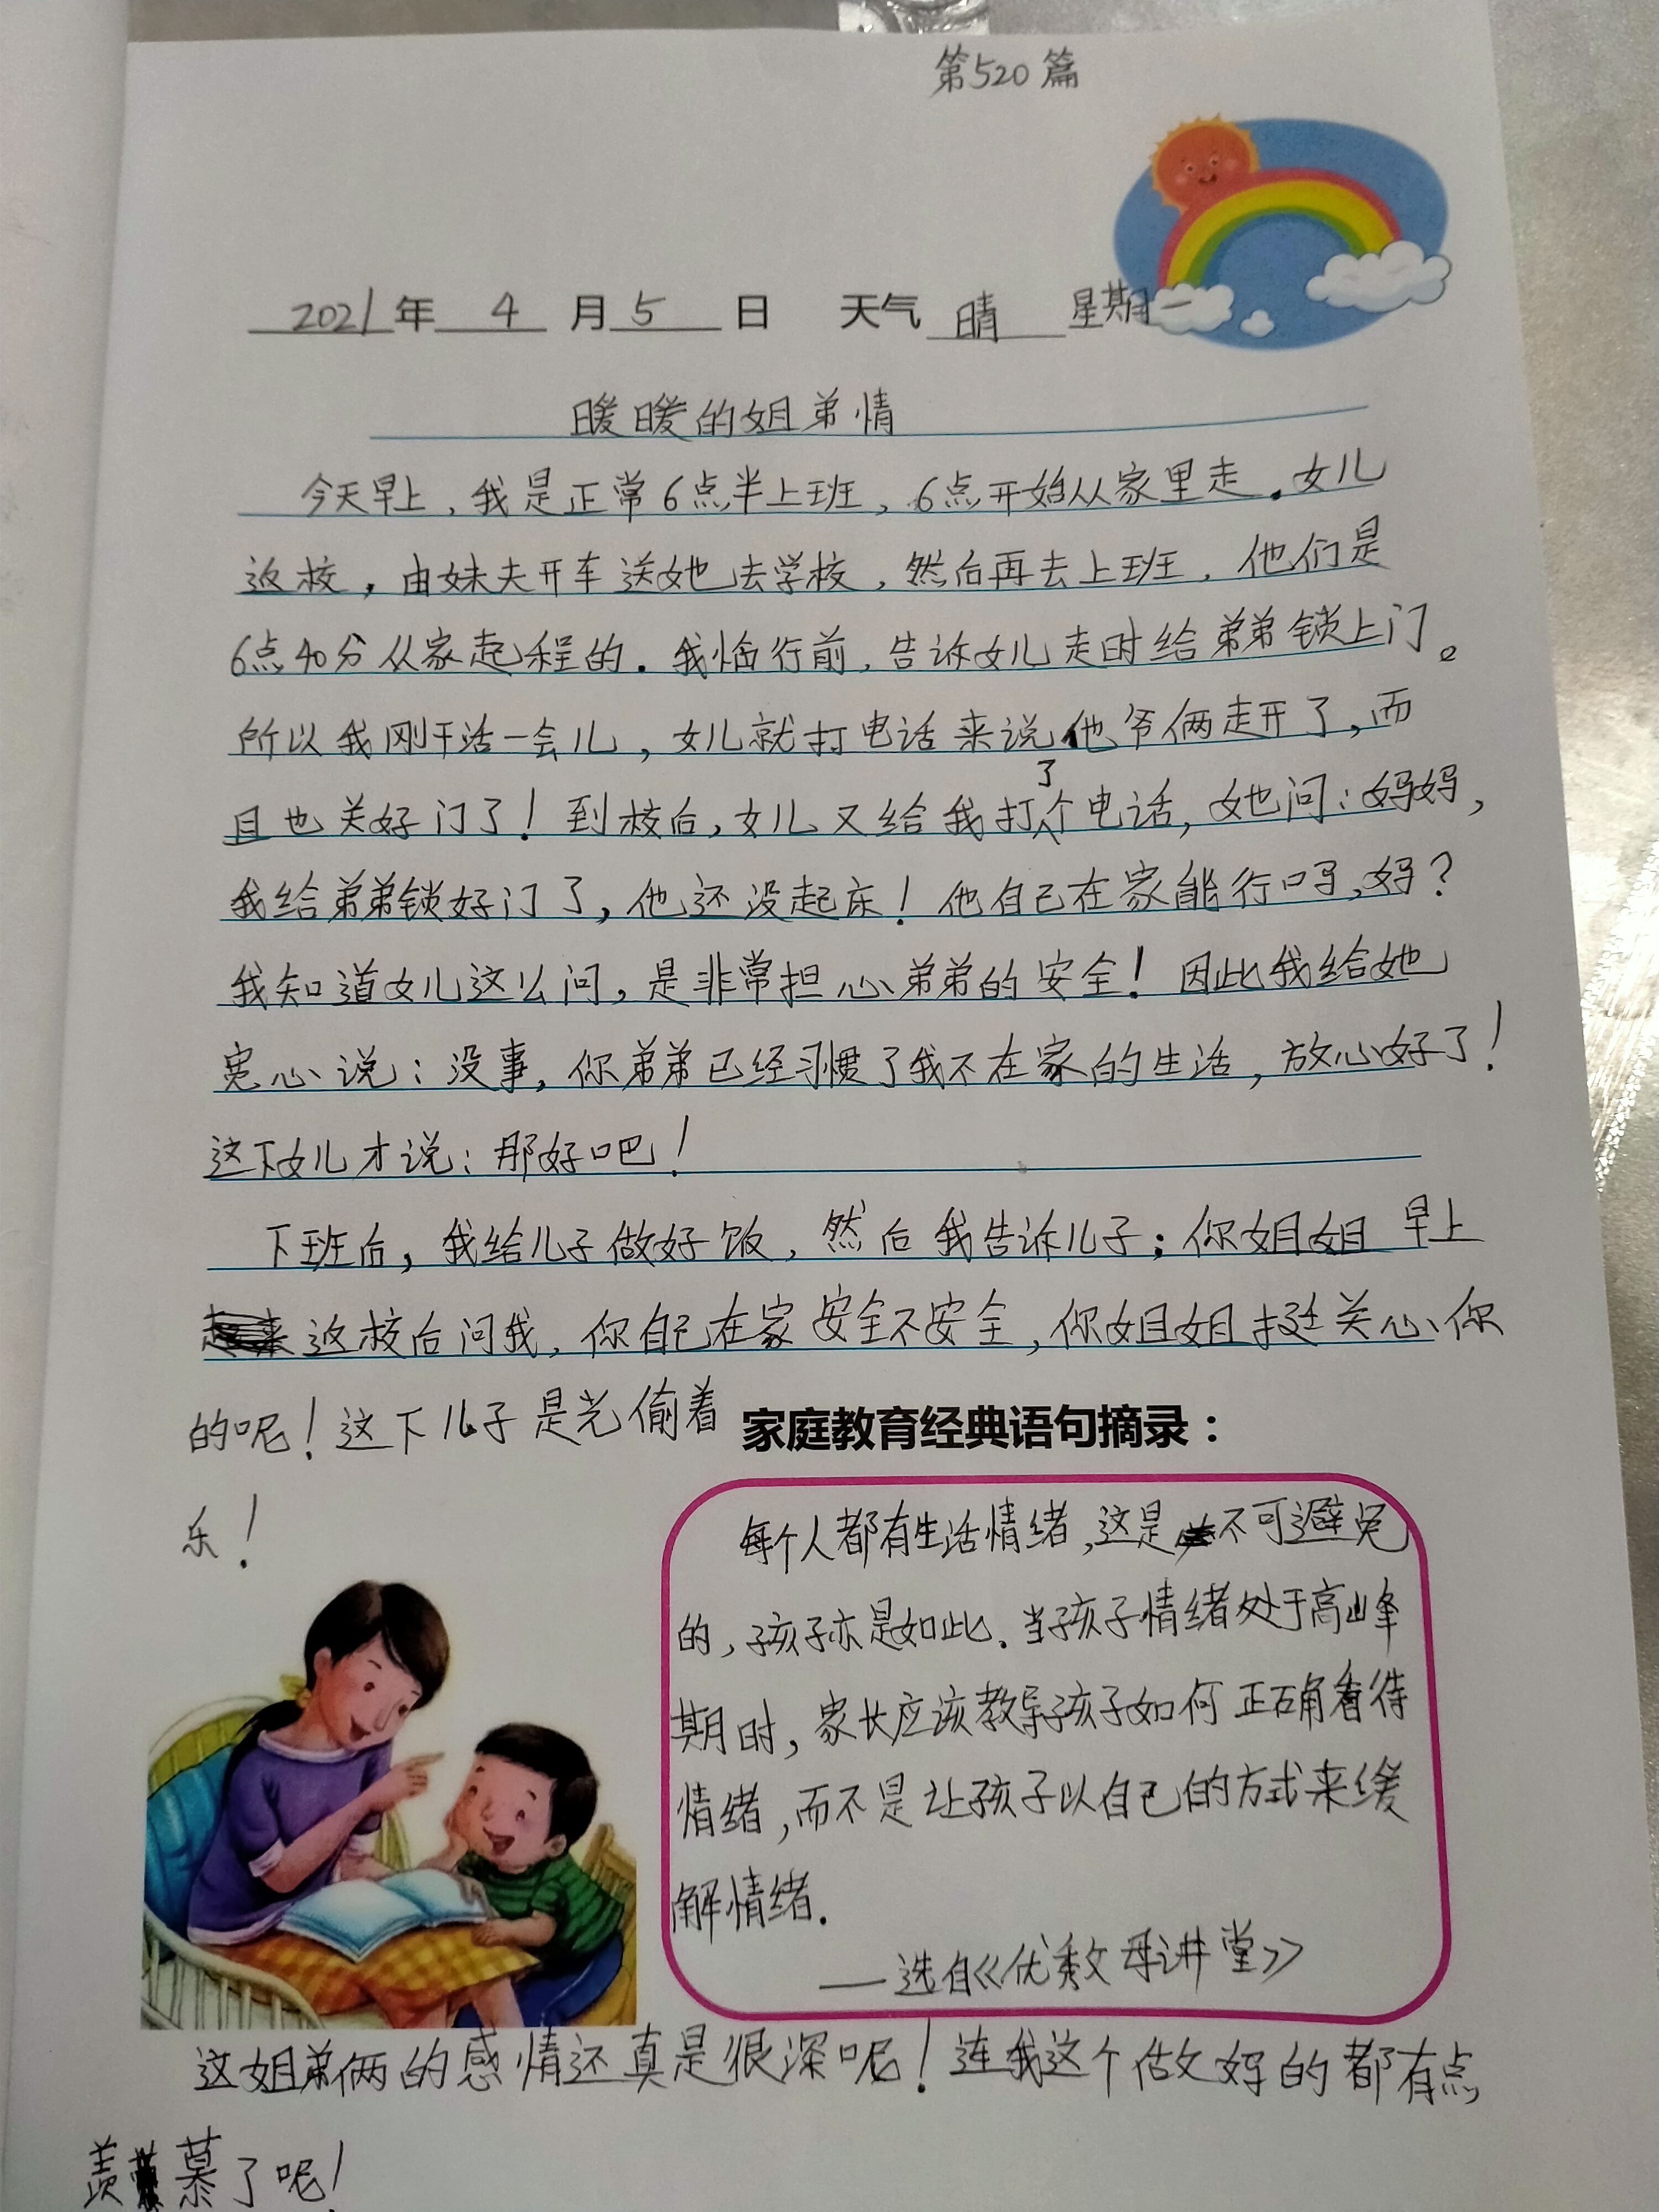 第520篇
2021年 4 月 5 日 天气 晴 星期一
暖暖的姐弟情
今天早上，我是正常6点半上班，6点开始从家里走。女儿
返校，由妹夫开车送她去学校，然后再去上班，他们是
6点40分从家起程的。我临行前，告诉女儿走时给弟弟锁上门。
所以我刚干活一会儿，女儿就打电话来说他爷俩走开了，而
且也关好门了！到校后，女儿又给我打了个电话，她问：妈妈，
我给弟弟锁好门了，他还没起床！他自己在家能行吗，妈？
我知道女儿这么问，是非常担心弟弟的安全！因此我给她
宽心说：没事，你弟弟已经习惯了我不在家的生活，放心好了！
这下女儿才说：那好吧！
下班后，我给儿子做好饭，然后我告诉儿子：你姐姐早上
返校后问我，你自己在家安全不安全，你姐姐挺关心你
的呢！这下儿子是光偷着
乐！
家庭教育经典语句摘录：
每个人都有生活情绪，这是不可避免
的，孩子亦是如此。当孩子情绪处于高峰
期时，家长应该教导孩子如何正确看待
情绪，而不是让孩子以自己的方式来缓
解情绪。
——选自《优秀父母讲堂》
这姐弟俩的感情还真是很深呢！连我这个做妈的都有点
羡慕了呢！